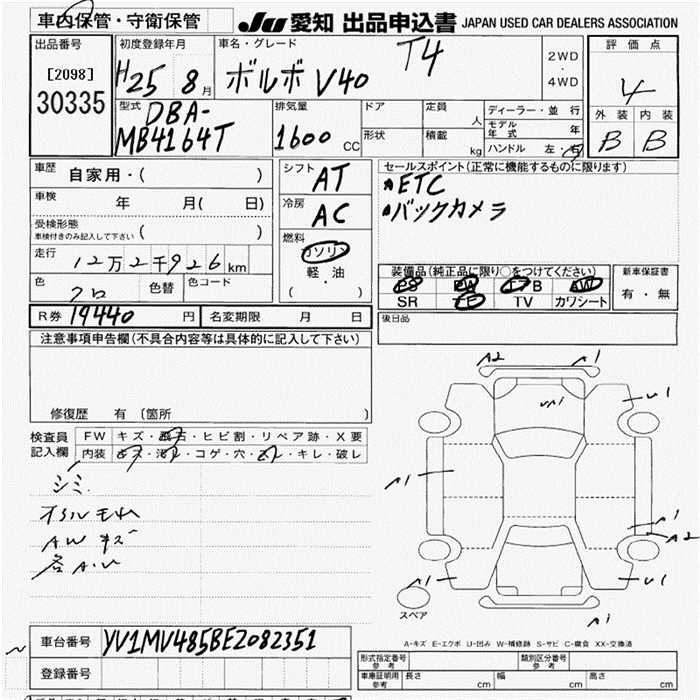 車内保管・守衛保管
JU 愛知 出品申込書 JAPAN USED CAR DEALERS ASSOCIATION
出品番号
[2098]
30335
初度登録年月
H25 8月
車名・グレード
ボルボ V40 T4
2WD
・
4WD
評価点
4
外装 内装
B B
型式
DBA-
MB4164T
排気量
1600 CC
ドア
形状
定員 人
積載 kg
ディーラー・並行
モデル年式 年
ハンドル 左・右
車歴 自家用・( )
車検 年 月( 日)
受検形態
車検付きのみ記入して下さい ( )
走行 12万2千926km
色 クロ 色替 色コード
シフト AT
冷房 AC
燃料
ガソリン
軽・油
( ・ )
セールスポイント(正常に機能するものに限ります)
ETC
バックカメラ
装備品(純正品に限り○をつけてください)
PS PW エアB AW
SR TV カワシート
新車保証書
有・無
R券 19440 円 名変期限 月 日
後日品
注意事項申告欄(不具合内容等は具体的に記入して下さい)
修復歴 有 〔箇所 〕
検査員
記入欄
FW キズ・飛石・ヒビ割・リペア跡・X要
内装 キズ・汚レ・コゲ・穴・スレ・キレ・破レ
シミ
オイルモれ
AW キズ
各A.U
A2 A1
U1
A1
A1
A2
A1 U1
A1
スペア
A-キズ E-エクボ U-凹み W-補修跡 S-サビ C-腐食 XX-交換済
車台番号 YV1MV485BE2082351
登録番号
形式指定番号
参考
類別区分番号
参考
車庫証明用
参考
長さ cm 幅 cm 高さ cm